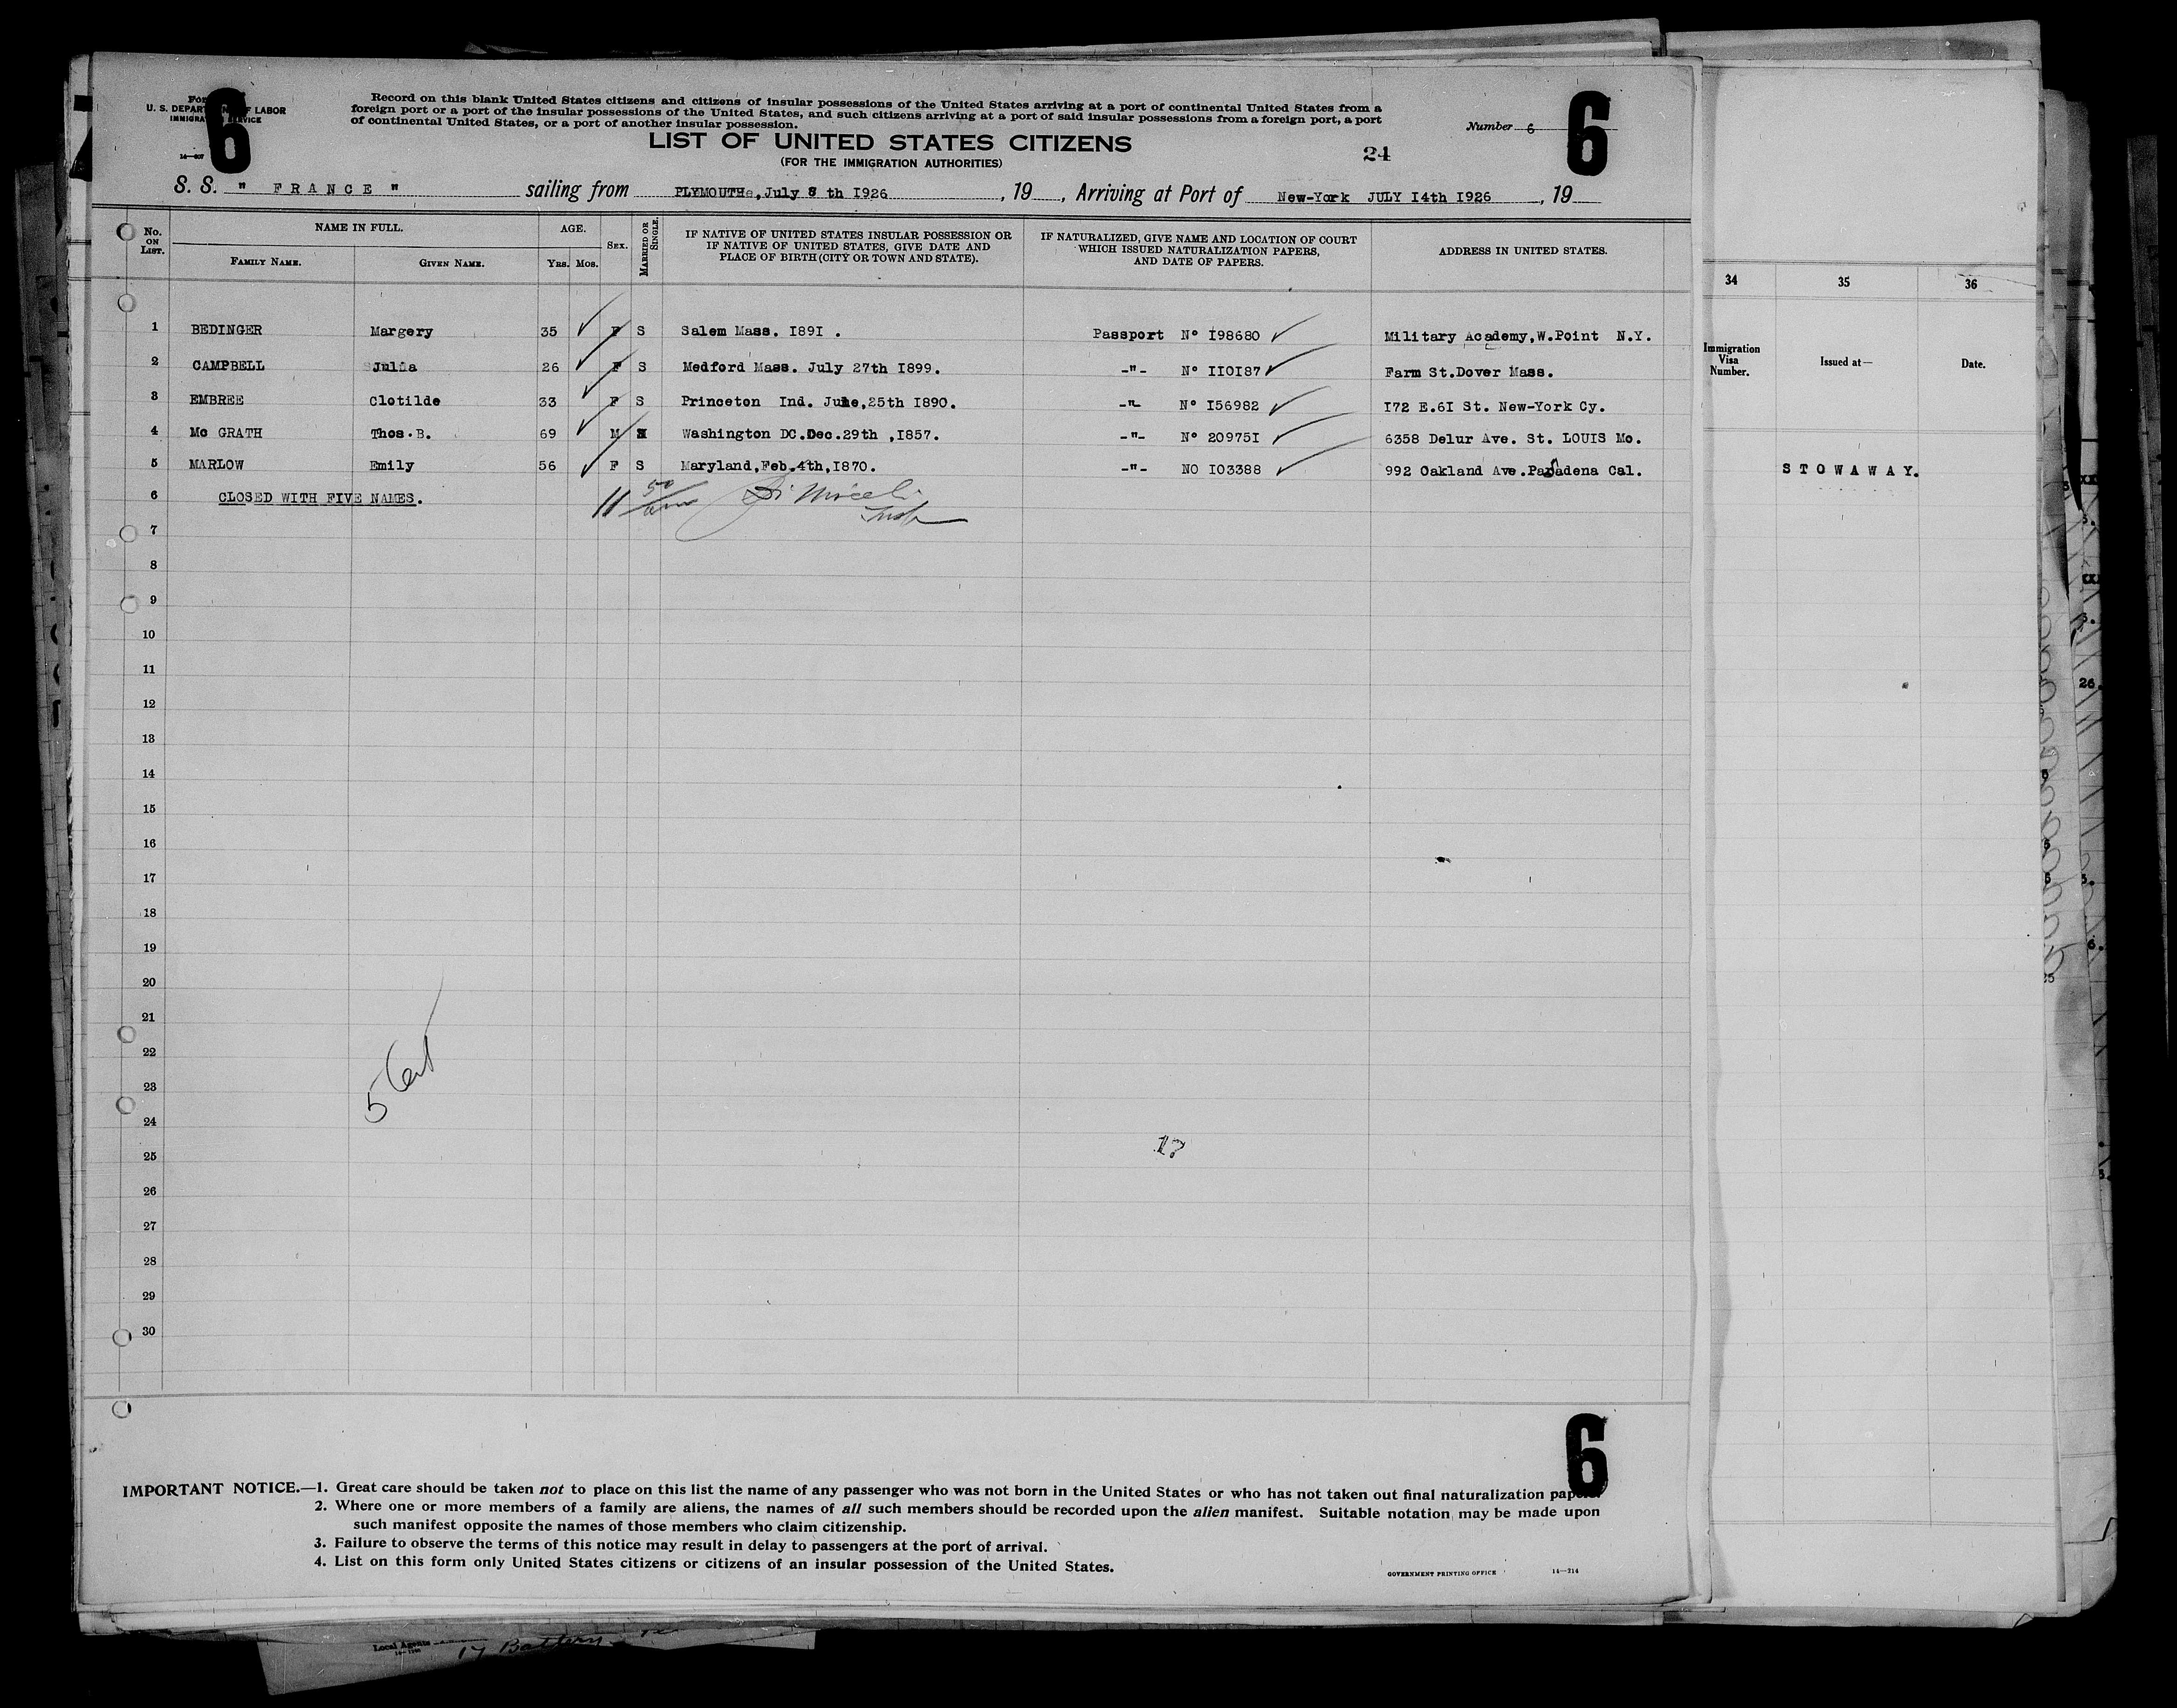 6
6
U. S. DEPARTMENT OF LABOR
IMMIGRATION SERVICE
Record on this blank United States citizens and citizens of insular possessions of the United States arriving at a port of continental United States from a
foreign port or a port of the insular possessions of the United States, and such citizens arriving at a port of said insular possessions from a foreign port, a port
of continental United States, or a port of another insular possession.
Number 6
LIST OF UNITED STATES CITIZENS
(FOR THE IMMIGRATION AUTHORITIES)
24
S. S. " FRANCE " sailing from PLYMOUTHe, July 8 th I926 , 19 , Arriving at Port of New-York JULY I4th I926 , 19
No. ON LIST.
NAME IN FULL.
FAMILY NAME. GIVEN NAME.
AGE.
YRS. MOS.
SEX.
MARRIED OR SINGLE.
IF NATIVE OF UNITED STATES INSULAR POSSESSION OR
IF NATIVE OF UNITED STATES, GIVE DATE AND
PLACE OF BIRTH (CITY OR TOWN AND STATE).
IF NATURALIZED, GIVE NAME AND LOCATION OF COURT
WHICH ISSUED NATURALIZATION PAPERS,
AND DATE OF PAPERS.
ADDRESS IN UNITED STATES.
1 BEDINGER Margery 35 F S Salem Mass. I89I . Passport Nº I98680 Military Academy,W.Point N.Y.
2 CAMPBELL Julia 26 F S Medford Mass. July 27th I899. -"- Nº II0I87 Farm St.Dover Mass.
3 EMBREE Clotilde 33 F S Princeton Ind. June,25th I890. -"- Nº I56982 I72 E.6I St. New-York Cy.
4 Mc GRATH Thos.B. 69 M Washington DC.Dec.29th ,I857. -"- Nº 20975I 6358 Delur Ave. St. LOUIS Mo.
5 MARLOW Emily 56 F S Maryland,Feb.4th,I870. -"- NO I03388 992 Oakland Ave.Pasadena Cal.
6 CLOSED WITH FIVE NAMES.
11 50
7
8
9
10
11
12
13
14
15
16
17
18
19
20
21
22
23
24
25
26
27
28
29
30
5
17
6
IMPORTANT NOTICE.—1. Great care should be taken not to place on this list the name of any passenger who was not born in the United States or who has not taken out final naturalization papers.
2. Where one or more members of a family are aliens, the names of all such members should be recorded upon the alien manifest. Suitable notation may be made upon
such manifest opposite the names of those members who claim citizenship.
3. Failure to observe the terms of this notice may result in delay to passengers at the port of arrival.
4. List on this form only United States citizens or citizens of an insular possession of the United States.
GOVERNMENT PRINTING OFFICE 14—214
34 35 36
Immigration
Visa
Number.
Issued at—
Date.
STOWAWAY.
Local Agents
17 Battery